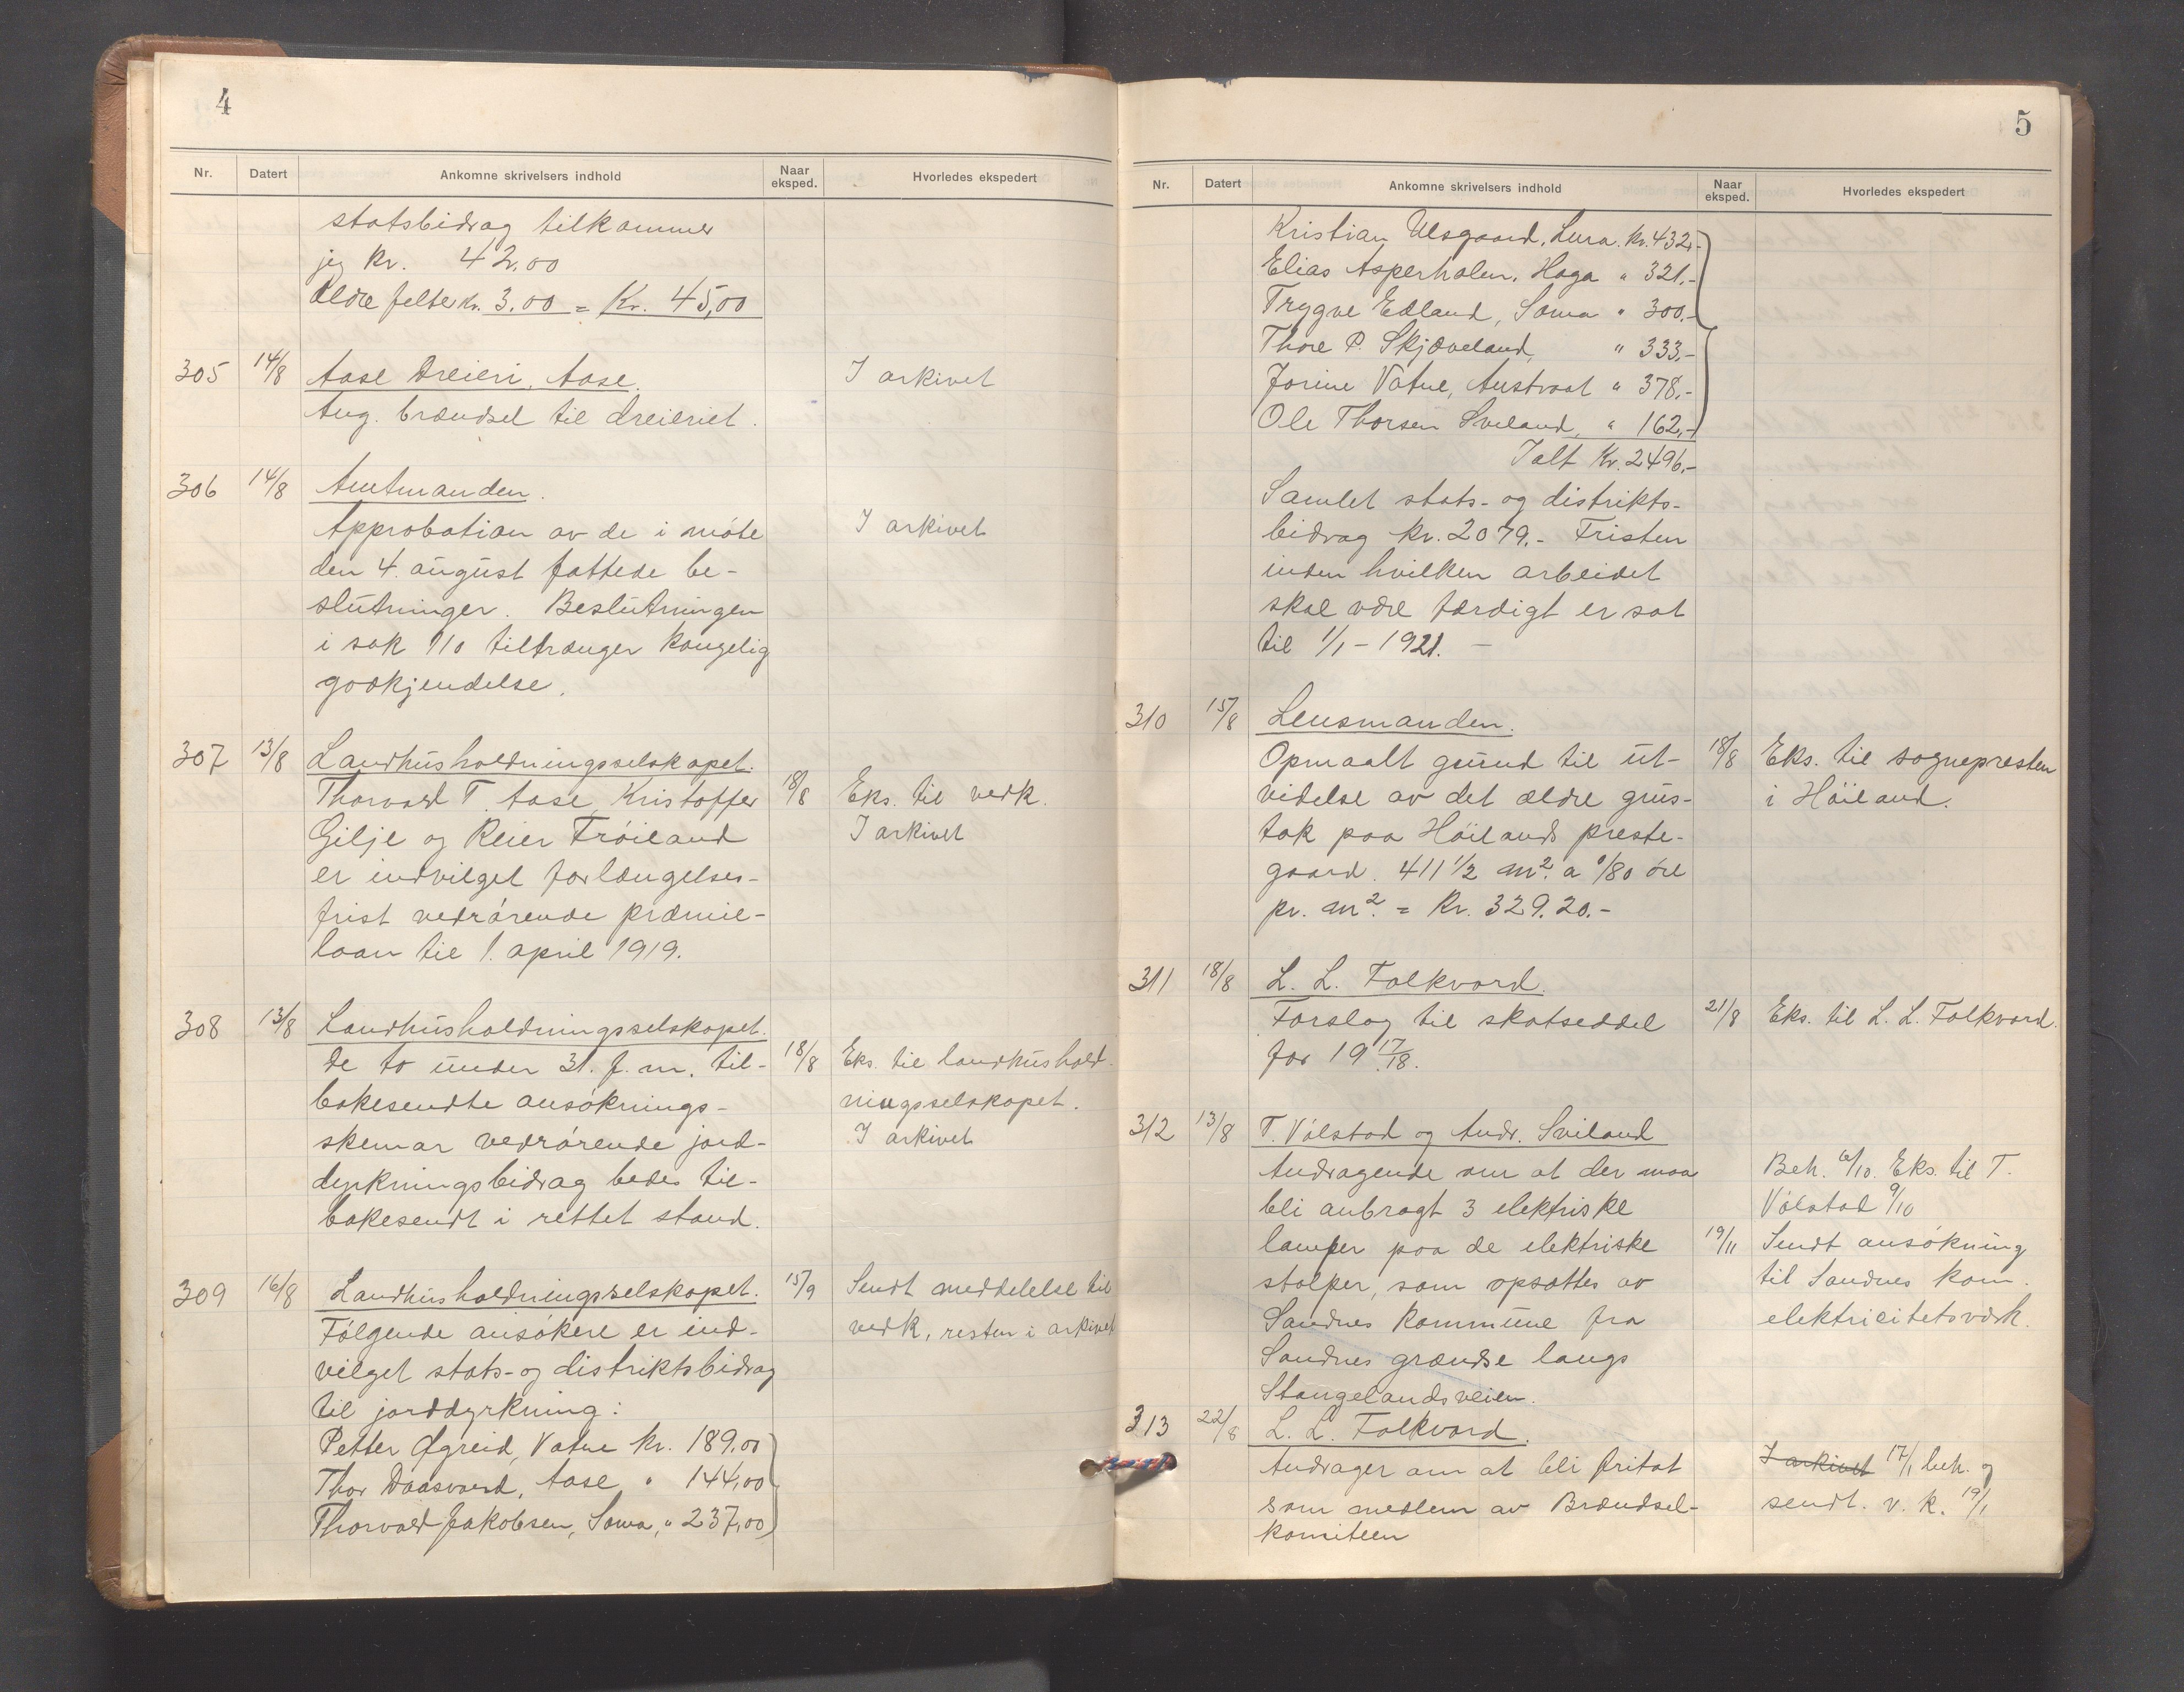 4
Nr. Datert Ankomne skrivelsers indhold Naar eksped. Hvorledes ekspedert
statsbidrag tilkommer
jeg kr. 42.00
ældre felter kr. 3.00 = Kr. 45,00
305 14/8 Aase Dreieri, Aase. I arkivet
Ang. brændsel til dreieriet.
306 14/8 Amtmanden.
Approbation av de i møte I arkivet
den 4. august fattede be-
slutninger. Beslutningen
i sak 110 tiltrænger kongelig
godkjendelse.
307 13/8 Landhusholdningsselskapet.
Thorvald T. Aase, Kristoffer 18/8 Eks. til vedk.
Gilje og Reier Frøiland I arkivet
er indvilget forlængelses-
frist vedrørende præmie-
laan til 1. april 1919.
308 13/8 Landhusholdningsselskapet.
De to under 31. f. m. til- 18/8 Eks. til landhushold-
bakesendte ansøknings- ningsselskapet.
skemar vedrørende jord- I arkivet
dyrkningsbidrag bedes til-
bakesendt i rettet stand.
309 16/8 Landhusholdningsselskapet. 15/9 Sendt meddelelse til
Følgende ansøkere er ind- vedk, resten i arkivet
vilget stats- og distriktsbidrag
til jorddyrkning:
Petter Øgreid, Vatne kr. 189,00
Thor Daasvand, Aase, " 144,00
Thorvald Jakobsen, Soma, " 237,00
5
Nr. Datert Ankomne skrivelsers indhold Naar eksped. Hvorledes ekspedert
Kristian Ulsgaard, Lura. kr. 432,-
Elias Asperholen, Hoga " 321.-
Trygve Edland, Soma " 300.-
Thore P. Skjæveland, " 333.-
Jorine Vatne, Austraat " 378.-
Ole Thorsen Sviland, " 162,-
Ialt Kr. 2496.-
Samlet stats- og distrikts-
bidrag kr. 2079.- Fristen
inden hvilken arbeidet
skal være færdigt er sat
til 1/1 - 1921. -
310 15/8 Lensmanden.
Opmaalt grund til ut- 18/8 Eks. til sognepresten
videlse av det ældre grus- i Høiland.
tak paa Høilands preste-
gaard. 411 1/2 m². a 0/80 øre
pr. m². = Kr. 329.20.-
311 18/8 L. L. Folkvord.
Forslag til skatseddel 21/8 Eks. til L. L. Folkvord.
for 19 17/18.
312 13/8 T. Vølstad og Andr. Sviland
Andragende om at der maa Beh. 6/10. Eks. til T.
bli anbragt 3 elektriske Vølstad 9/10
lamper paa de elektriske 19/11 Sendt ansøkning
stolper, som opsættes av til Sandnes kom.
Sandnes kommune fra elektricitetsværk.
Sandnes grændse langs
Stangelandsveien.
313 22/8 L. L. Folkvord.
Andrager om at bli fritat I arkivet 17/1 beh. og
som medlem av Brændsel- sendt. v. k. 19/1
komiteen